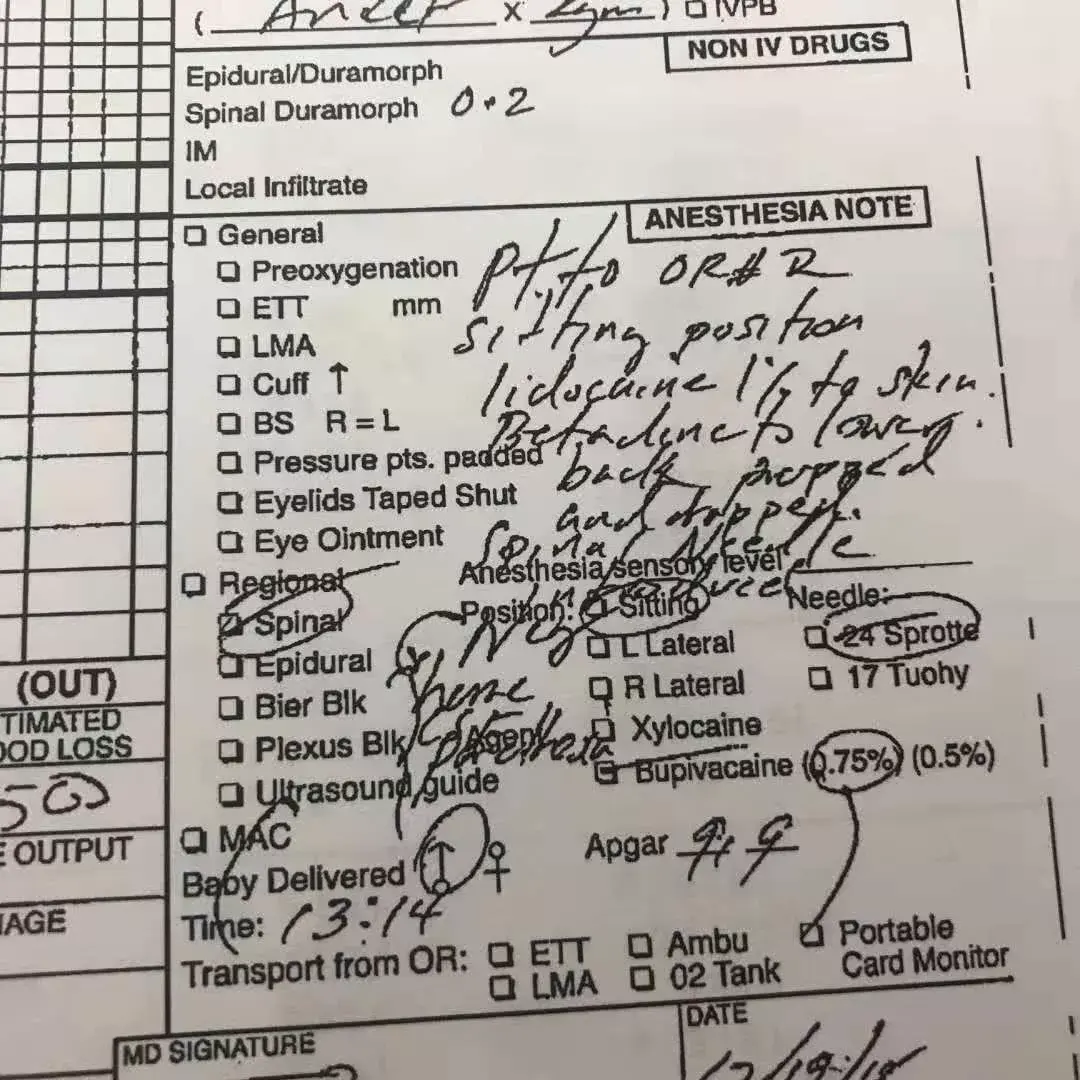 ( Ancef x 2gm ) ☐ IVPB
NON IV DRUGS
Epidural/Duramorph
Spinal Duramorph 0.2
IM
Local Infiltrate
ANESTHESIA NOTE
☐ General
☐ Preoxygenation
☐ ETT mm
☐ LMA
☐ Cuff ↑
☐ BS R = L
☐ Pressure pts. padded
☐ Eyelids Taped Shut
☐ Eye Ointment
Pt. to OR# 2
sitting position
lidocaine 1% to skin.
Betadine to lower
back prepped
and draped.
Spinal Needle
Neg
heme
paresthesia
☐ Regional
Anesthesia/sensory level
☑ Spinal
☐ Epidural
☐ Bier Blk
☐ Plexus Blk
☐ Ultrasound guide
Position: ☐ Sitting
☐ L Lateral
☐ R Lateral
Needle:
☐ 24 Sprotte
☐ 17 Tuohy
Agent ☐ Xylocaine
☐ Bupivacaine (0.75%) (0.5%)
☐ MAC
Baby Delivered ♂ ♀
Apgar 9, 9
Time: 13:14
Transport from OR: ☐ ETT ☐ Ambu ☐ Portable
☐ LMA ☐ 02 Tank Card Monitor
(OUT)
TIMATED
OOD LOSS
500
E OUTPUT
NAGE
MD SIGNATURE
DATE